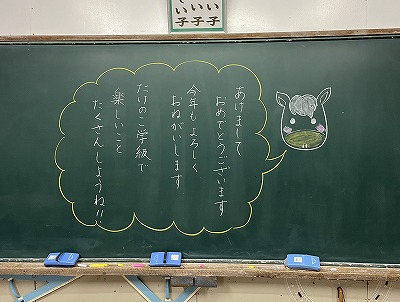 いいい
子子子
あけまして
おめでとうございます
今年もよろしく
おねがいします
たけのこ学級で
楽しいこと
たくさんしようね!!